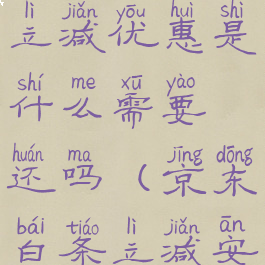 lì jiǎn yōu huì shì
立减优惠是
shí me xū yào
什么需要
huán ma jīng dōng
还吗（京东
bái tiáo lì jiǎn ān
白条立减安